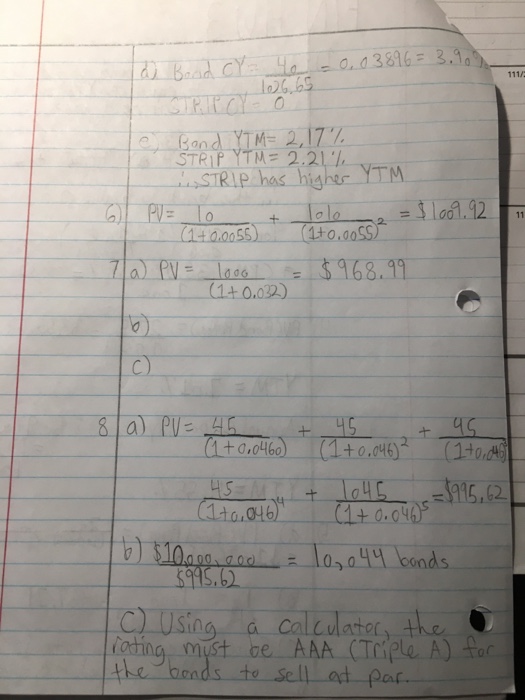 d) Bond CY = 40 / 1026.65 = 0.03896 = 3.90%
STRIP CY = 0
e) Bond YTM = 2.17%
STRIP YTM = 2.21%
∴ STRIP has higher YTM
6) PV = 10 / (1+0.0055) + 1010 / (1+0.0055)² = $1009.92
7 a) PV = 1000 / (1+0.032) = $968.99
b)
c)
8 a) PV = 45 / (1+0.0460) + 45 / (1+0.046)² + 45 / (1+0.046)
45 / (1+0.046)⁴ + 1045 / (1+0.046)⁵ = $995.62
b) $10,000,000 / $995.62 = 10,044 bonds
C) Using a calculator, the
rating must be AAA (Triple A) for
the bonds to sell at par.
111/
11